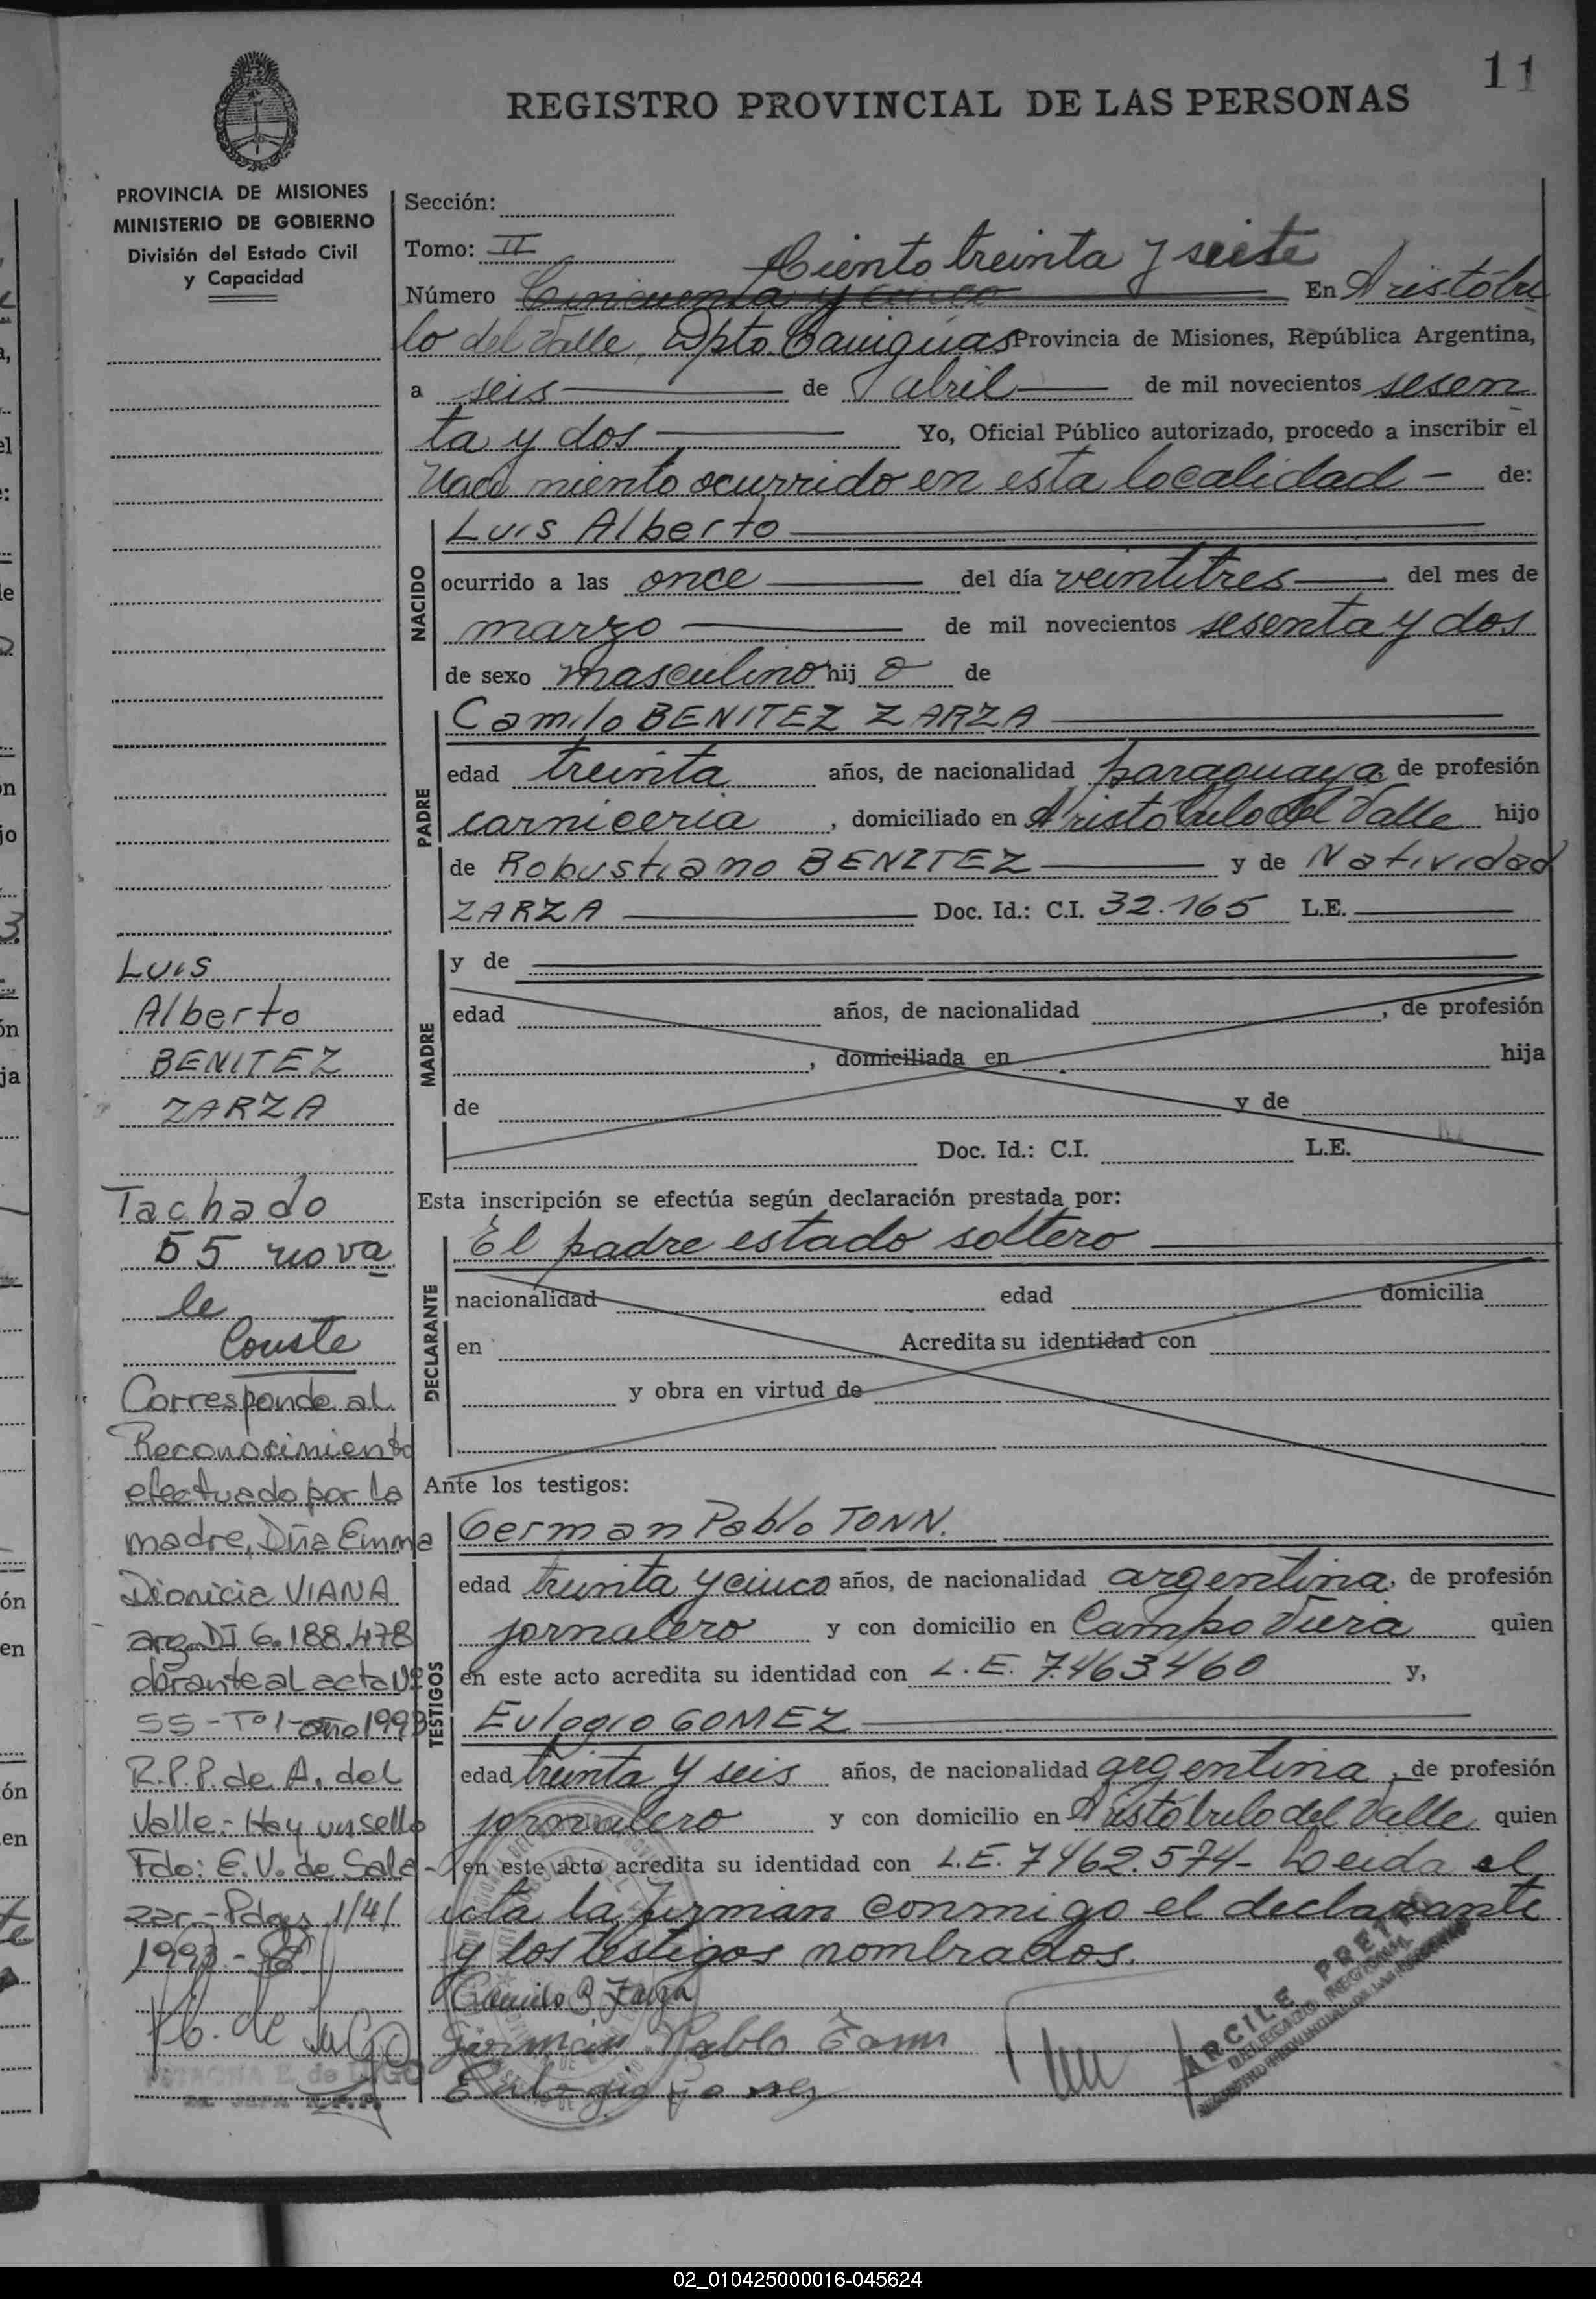 11
REGISTRO PROVINCIAL DE LAS PERSONAS
PROVINCIA DE MISIONES
MINISTERIO DE GOBIERNO
División del Estado Civil
y Capacidad
Sección:
Tomo: II
Ciento treinta y siete
Número Cincuenta y cinco En Aristóbu
lo del Valle, Dpto. Cainguas Provincia de Misiones, República Argentina,
a seis de abril de mil novecientos sesen
ta y dos Yo, Oficial Público autorizado, procedo a inscribir el
Naci miento ocurrido en esta localidad - de:
NACIDO
Luis Alberto
ocurrido a las once del día veintitres del mes de
marzo de mil novecientos sesenta y dos
de sexo masculino hij o de
PADRE
Camilo BENITEZ ZARZA
edad treinta años, de nacionalidad paraguaya, de profesión
carniceria, domiciliado en Aristóbulo del Valle hijo
de Robustiano BENITEZ y de Natividad
ZARZA Doc. Id.: C.I. 32.165 L.E.
MADRE
y de
edad años, de nacionalidad , de profesión
, domiciliada en hija
de y de
Doc. Id.: C.I. L.E.
Esta inscripción se efectúa según declaración prestada por:
DECLARANTE
El padre estado soltero
nacionalidad edad domicilia
en Acredita su identidad con
y obra en virtud de
Ante los testigos:
TESTIGOS
German Pablo TONN.
edad treinta y cinco años, de nacionalidad argentina, de profesión
jornalero y con domicilio en Campo Viera quien
en este acto acredita su identidad con L.E. 7.463460 y,
Eulogio GOMEZ
edad treinta y seis años, de nacionalidad argentina, de profesión
jornalero y con domicilio en Aristóbulo del Valle quien
en este acto acredita su identidad con L.E. 7462.574- Leida el
acta la firman conmigo el declarante
y los testigos nombrados.
Camilo B Zarza
German Pablo Tonn
Eulogio
ARCILE PRETTO
DELEGADO REGIONAL
REGISTRO PROVINCIAL DE LAS PERSONAS
Luis
Alberto
BENITEZ
ZARZA
Tachado
55 no va
le
Conste
Corresponde al
Reconocimiento
efectuado por la
madre, Dña Emma
Dionicia VIANA
arg. DI 6.188.478
obrante al acta Nº
55-Tº1-año 1993
R.P.P. de A. del
Valle.- Hay un sello
Fdo: E.V. de Sala-
zar.- Pdas 1/4/
1993.-
E. de LUGO
02_010425000016-045624